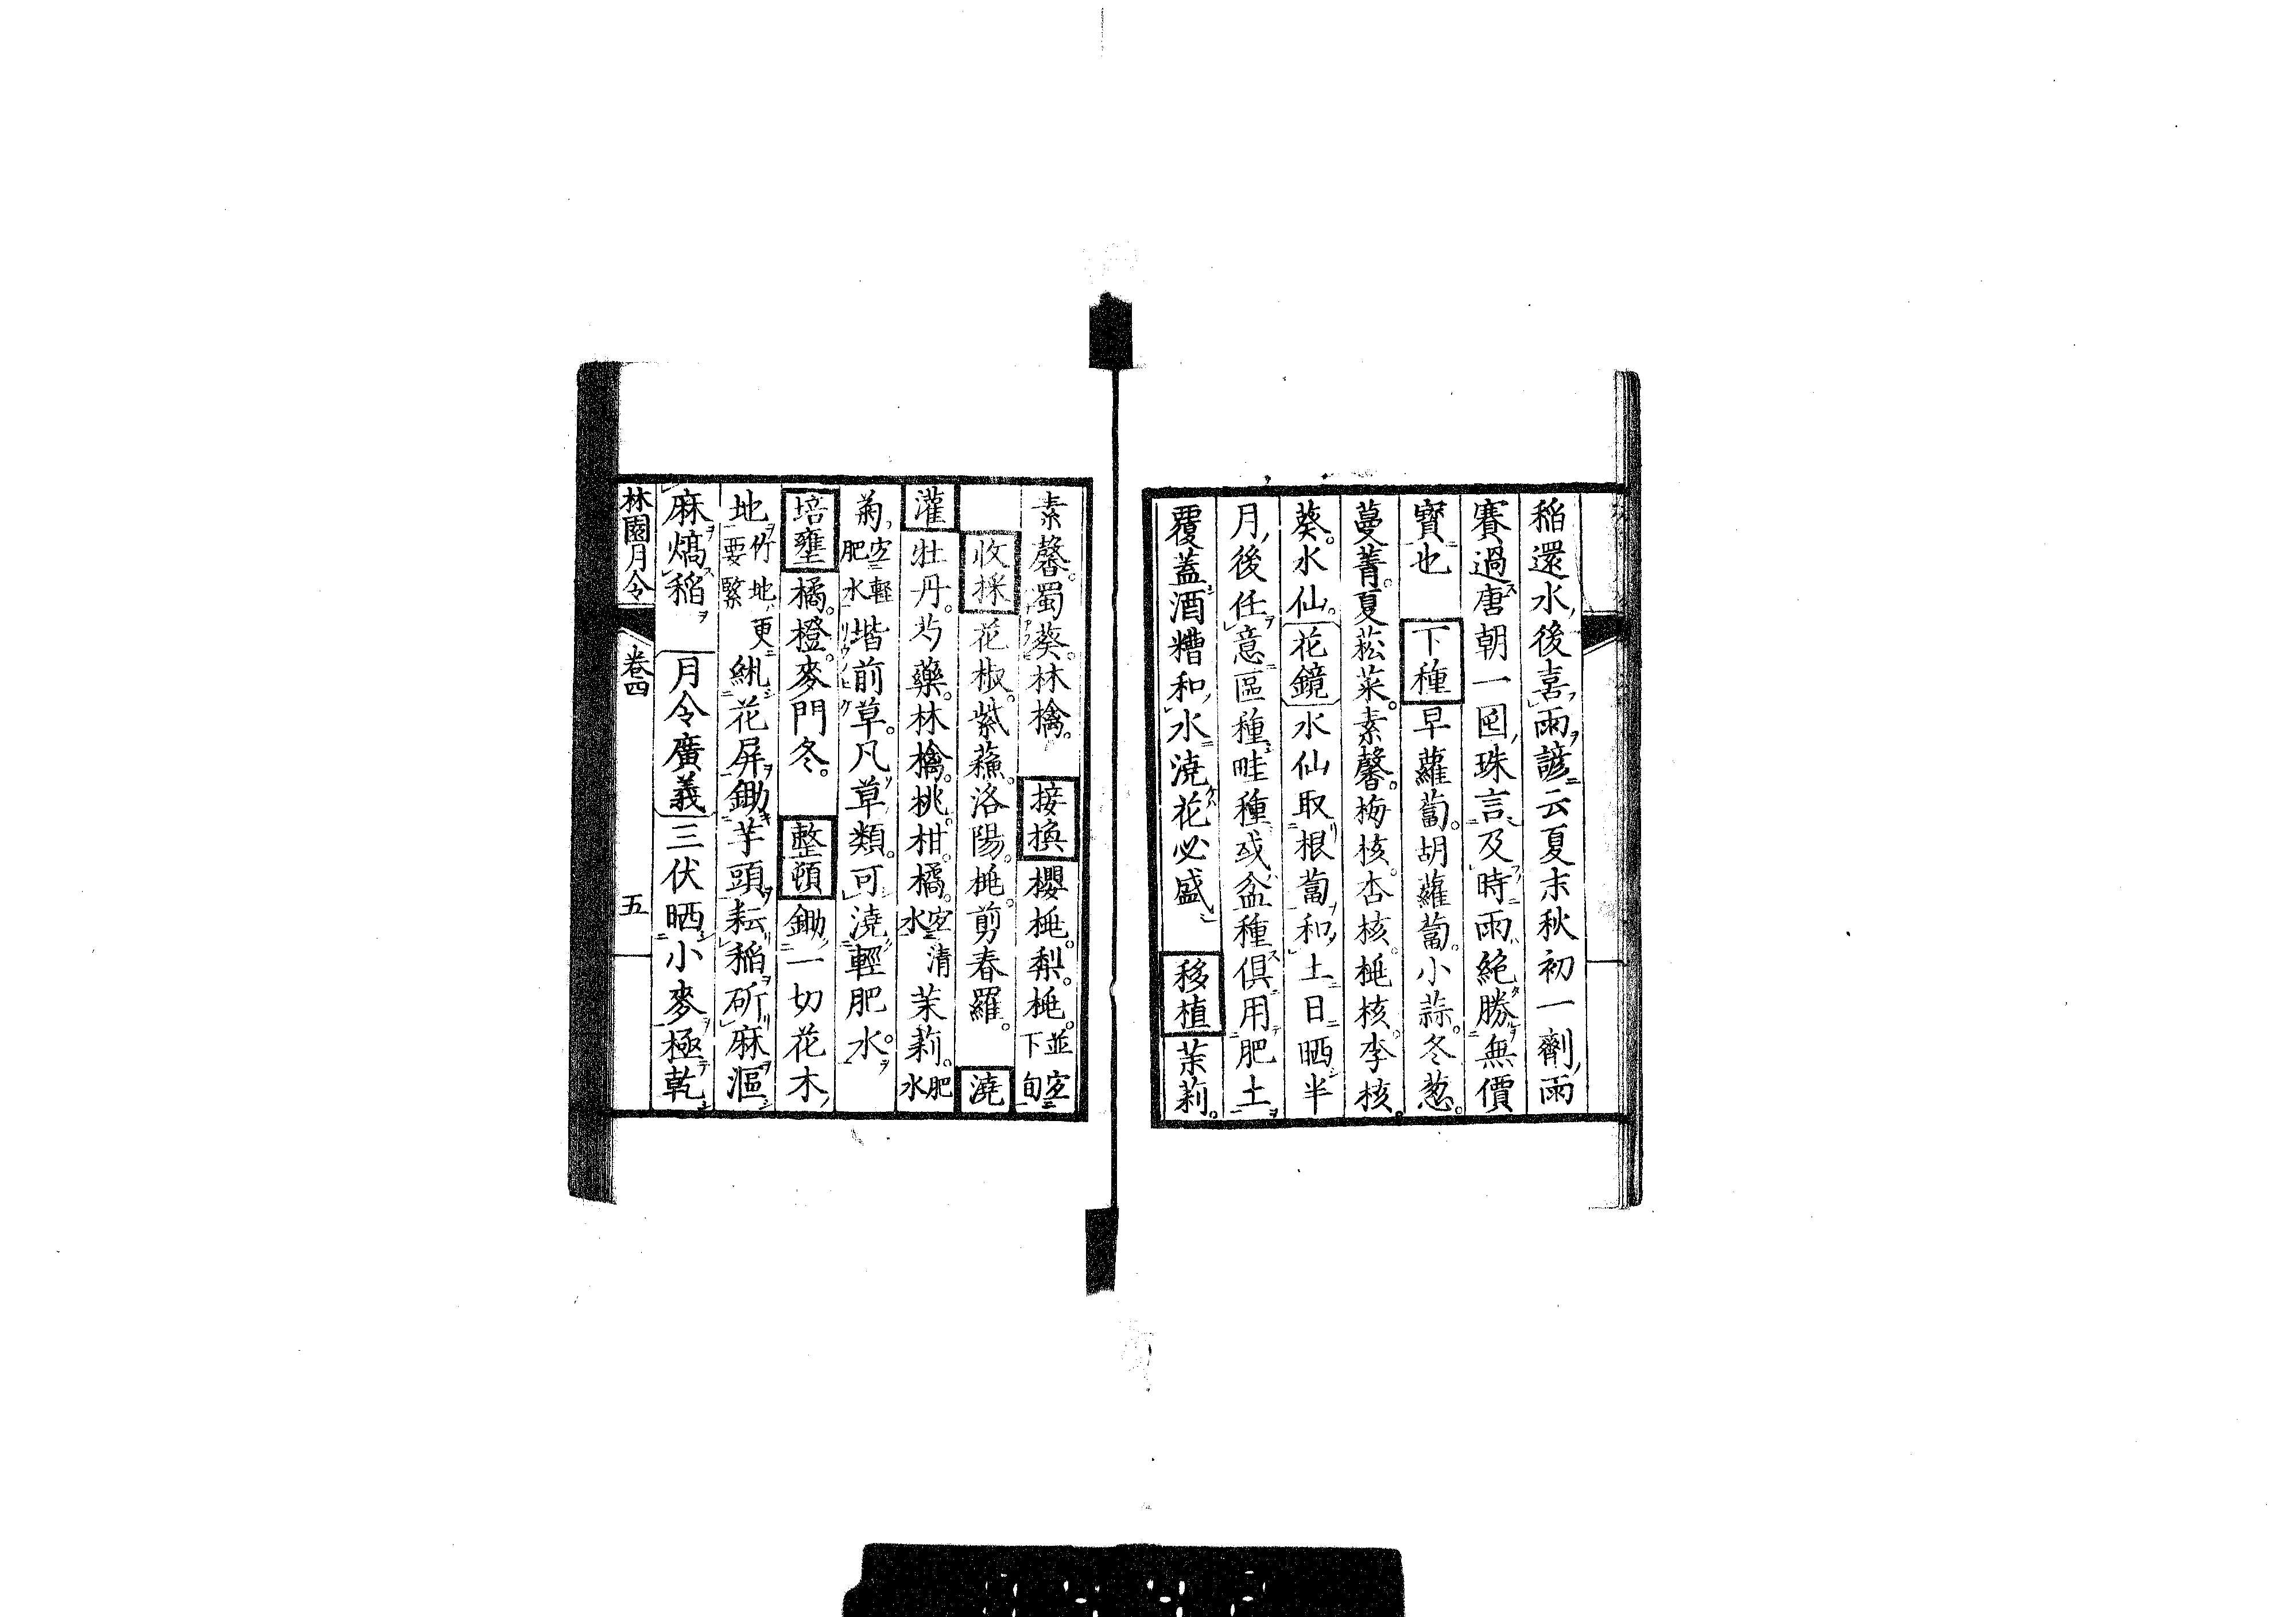 稲還水後喜雨諺云夏末秋初一劑雨
賽過唐朝一囤珠言及時雨絶勝無價
寳也 下種 早蘿蔔。胡蘿蔔。小蒜。冬葱。
蔓菁。夏菘菜。素馨。梅核。杏核。桃核。李核。
葵。水仙。花鏡 水仙取根蔔和土日晒半
月後任意區種畦種或盆種俱用肥土
覆蓋酒糟和水澆花必盛 移植 茉莉。
素馨。蜀葵。林檎。 接換 櫻桃。梨。桃。並宜下旬
收採 花椒。紫蘓。洛陽。桃。剪春羅。 澆
灌 牡丹。芍藥。林檎。桃。柑。橘。宜清水 茉莉。肥水
菊宜輕肥水 堦前草。凡草類。可澆輕肥水。
培壅 橘。橙。麥門冬。 整頓 鋤一切花木
地竹地更要緊 綑花屏鋤芋頭耘稲斫麻漚
麻熇稲 月令廣義 三伏晒小麥極乾
林園月令 卷四 五